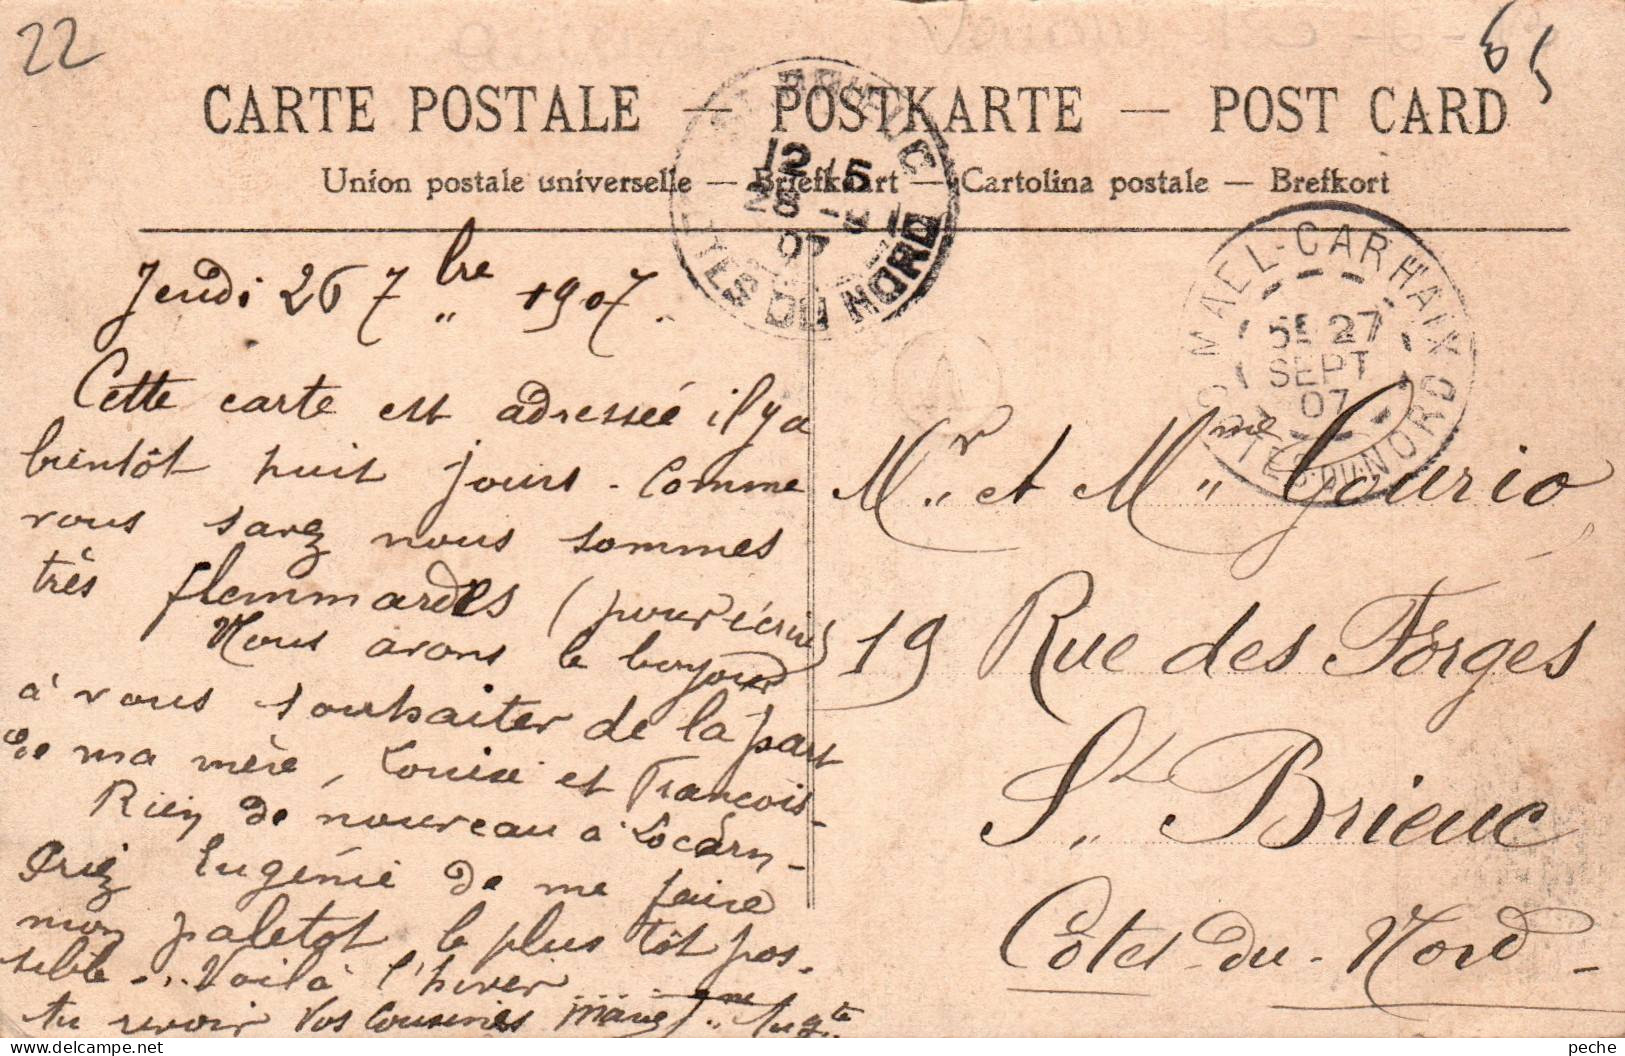 22
65
CARTE POSTALE — POSTKARTE — POST CARD
Union postale universelle — Briefkaart — Cartolina postale — Brefkort
BRIEUC
12 15
28 -9
07
COTES DU NORD
MAEL-CARHAIX
5E 27
SEPT
07
COTES-DU-NORD
Jeudi 26 7bre 1907.
Cette carte est adressée il y a
bientôt huit jours. Comme
vous savez nous sommes
très flemmardes (pour écrire)
Nous avons le bonjour
à vous souhaiter de la part
de ma mère, Louise et François-
Rien de nouveau à Locarn-
Priez Eugénie de me faire
mon paletot le plus tôt pos-
sible... Voilà l'hiver
Au revoir Vos Cousines Marie Jne Augte
Mr et Mme Gourio
19 Rue des Forges
St Brieuc
Côtes-du-Nord-
peche